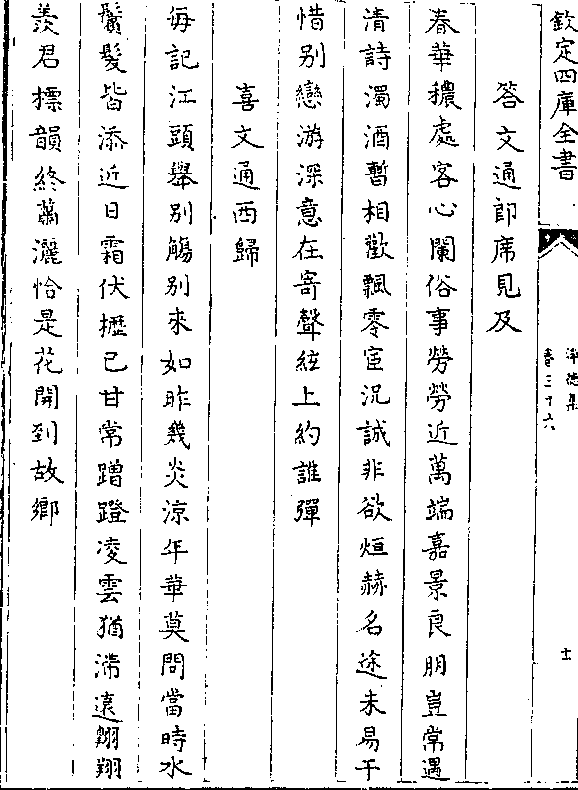 欽定四庫全書
淨德集
卷三十六
十一
答文通即席見及
春華穠處客心闌俗事勞勞近萬端嘉景良朋豈常遇
清詩濁酒暫相歡飄零宦況誠非欲烜赫名途未易干
惜别戀游深意在寄聲絃上約誰彈
喜文通西歸
每記江頭舉别觴别來如昨幾炎涼年華莫問當時水
鬢髮皆添近日霜伏櫪已甘常蹭蹬凌雲猶滯遠翺翔
羨君標韻終蕭灑恰是花開到故鄉